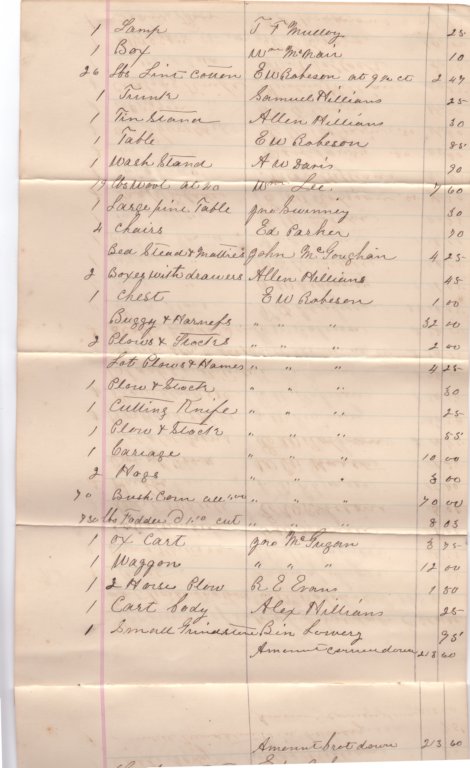 1 Lamp T F Mulloy 25
1 Box Wm McNair 10
26 lbs Lint Cotton E W Robeson at 9 ct 2 47
1 Trunk Samuel Hillians 25
1 Tin Stand Allen Hillians 30
1 Table E W Robeson 85
1 Wash Stand A W Davis 90
19 lbs Wool at 40 Wm Lee 7 60
1 Large pine Table Jno Swinney 30
4 Chairs Ed Parker 30
Bed Stead & John McGoughan 4 25
2 Boxes with drawers Allen Hillians 45
1 Chest E W Robeson 1 00
Buggy & Harness " " " 32 00
2 Plows & Stocks " " " 2 00
Lot Plows & Hames " " " 4 25
1 Plow & Stock " " " 30
1 Cutting Knife " " " 25
1 Plow & Stock " " " 55
1 Cariage " " " 10 00
2 Hogs " " " 3 00
70 Bush Corn 1.00 " " " 70 00
730 lbs Fodder 1.10 " " " 8 03
1 Ox Cart Jno 3 75
1 Waggon " " " 12 00
1 2 Horse Plow R E Evans 1 50
1 Cart body Alex Hillians 25
1 Small Grindstone Bin Lowery 95
Amount carried down 213 60
Amount brot down 213 60